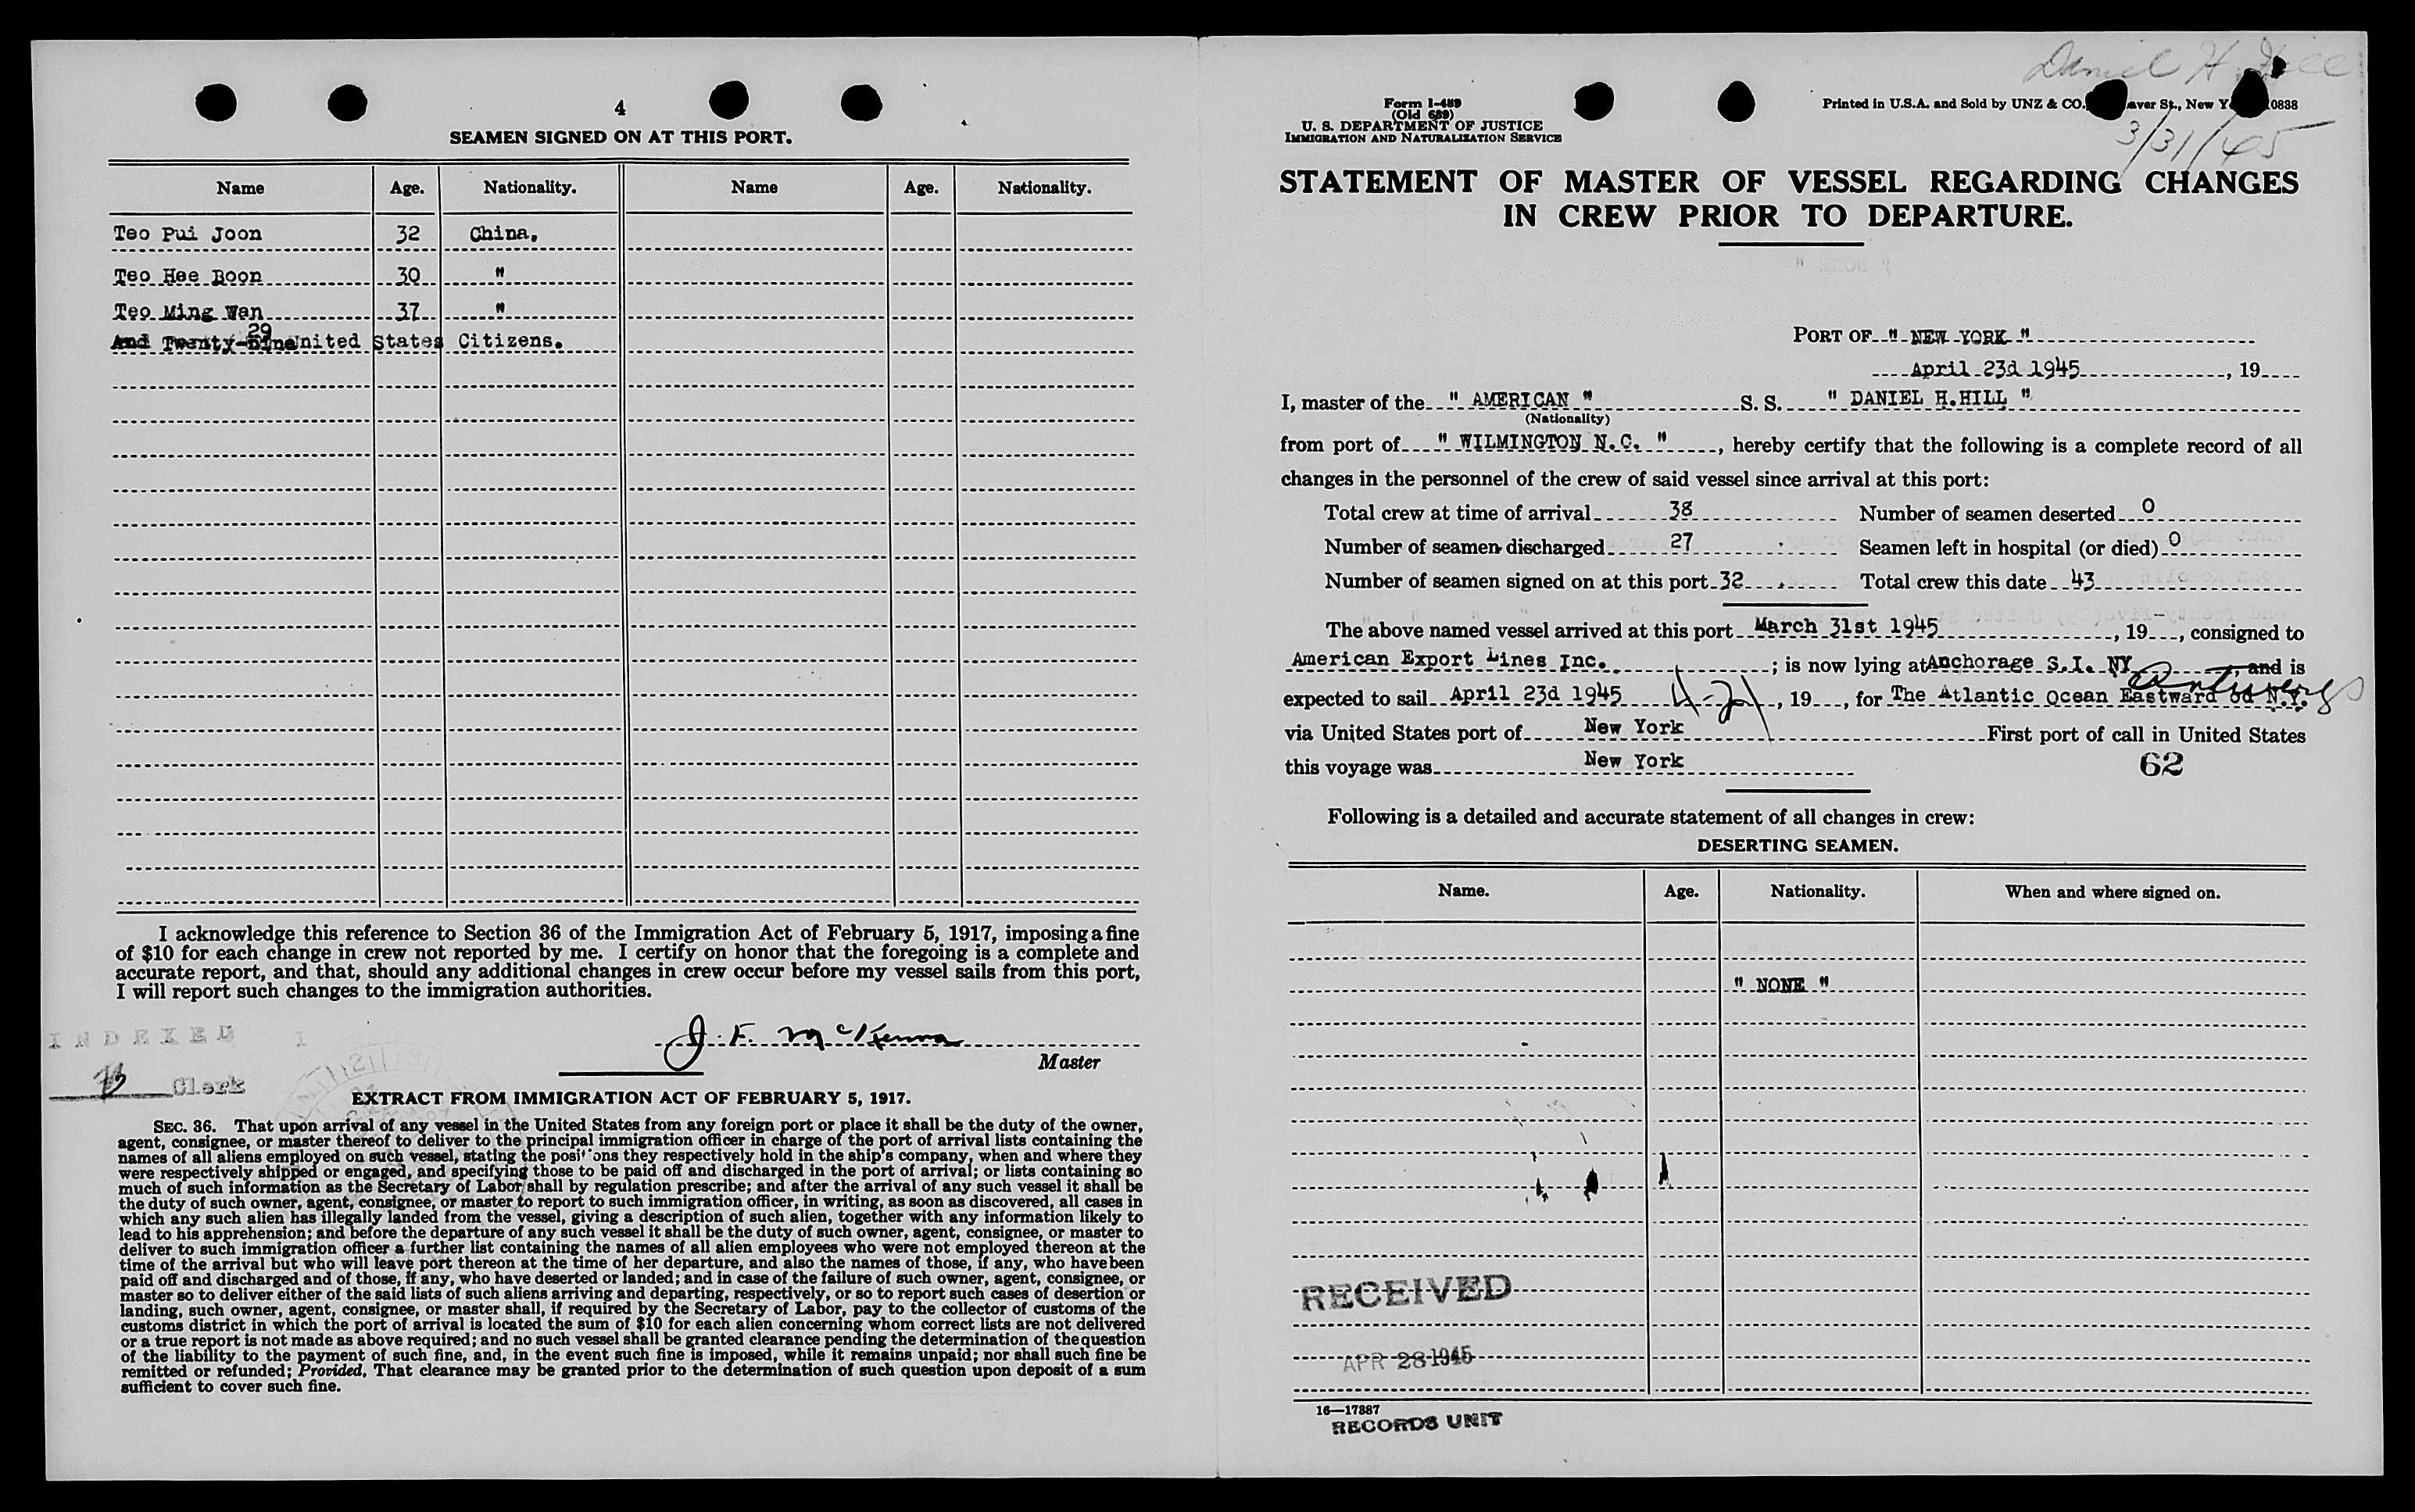 4
SEAMEN SIGNED ON AT THIS PORT.
Name Age. Nationality. Name Age. Nationality.
Teo Pui Joon 32 China.
Teo Hee Boon 30 "
Teo Ming Wan 37 "
29
And Twenty-nine United States Citizens.
I acknowledge this reference to Section 36 of the Immigration Act of February 5, 1917, imposing a fine
of $10 for each change in crew not reported by me. I certify on honor that the foregoing is a complete and
accurate report, and that, should any additional changes in crew occur before my vessel sails from this port,
I will report such changes to the immigration authorities.
INDEXED
J. F. McKenna
Master
Clerk
EXTRACT FROM IMMIGRATION ACT OF FEBRUARY 5, 1917.
SEC. 36. That upon arrival of any vessel in the United States from any foreign port or place it shall be the duty of the owner,
agent, consignee, or master thereof to deliver to the principal immigration officer in charge of the port of arrival lists containing the
names of all aliens employed on such vessel, stating the positions they respectively hold in the ship's company, when and where they
were respectively shipped or engaged, and specifying those to be paid off and discharged in the port of arrival; or lists containing so
much of such information as the Secretary of Labor shall by regulation prescribe; and after the arrival of any such vessel it shall be
the duty of such owner, agent, consignee, or master to report to such immigration officer, in writing, as soon as discovered, all cases in
which any such alien has illegally landed from the vessel, giving a description of such alien, together with any information likely to
lead to his apprehension; and before the departure of any such vessel it shall be the duty of such owner, agent, consignee, or master to
deliver to such immigration officer a further list containing the names of all alien employees who were not employed thereon at the
time of the arrival but who will leave port thereon at the time of her departure, and also the names of those, if any, who have been
paid off and discharged and of those, if any, who have deserted or landed; and in case of the failure of such owner, agent, consignee, or
master so to deliver either of the said lists of such aliens arriving and departing, respectively, or so to report such cases of desertion or
landing, such owner, agent, consignee, or master shall, if required by the Secretary of Labor, pay to the collector of customs of the
customs district in which the port of arrival is located the sum of $10 for each alien concerning whom correct lists are not delivered
or a true report is not made as above required; and no such vessel shall be granted clearance pending the determination of the question
of the liability to the payment of such fine, and, in the event such fine is imposed, while it remains unpaid; nor shall such fine be
remitted or refunded; Provided, That clearance may be granted prior to the determination of such question upon deposit of a sum
sufficient to cover such fine.
Daniel H. Hill
Form I-489
(Old 689)
U. S. DEPARTMENT OF JUSTICE
IMMIGRATION AND NATURALIZATION SERVICE
Printed in U.S.A. and Sold by UNZ & CO. aver St., New Y 0838
3/31/45
STATEMENT OF MASTER OF VESSEL REGARDING CHANGES
IN CREW PRIOR TO DEPARTURE.
PORT OF " NEW YORK "
April 23d 1945, 19
I, master of the " AMERICAN " S. S. " DANIEL H.HILL "
(Nationality)
from port of " WILMINGTON N.C. ", hereby certify that the following is a complete record of all
changes in the personnel of the crew of said vessel since arrival at this port:
Total crew at time of arrival 38 Number of seamen deserted 0
Number of seamen discharged 27 Seamen left in hospital (or died) 0
Number of seamen signed on at this port 32 Total crew this date 43
The above named vessel arrived at this port March 31st 1945, 19, consigned to
American Export Lines Inc. ; is now lying at Anchorage S.I. NY, and is
Antwerp
expected to sail April 23d 1945, 19, for The Atlantic Ocean Eastward od N.Y.
via United States port of New York First port of call in United States
this voyage was New York
62
Following is a detailed and accurate statement of all changes in crew:
DESERTING SEAMEN.
Name. Age. Nationality. When and where signed on.
" NONE "
RECEIVED
APR 28 1945
16—17887
RECORDS UNIT